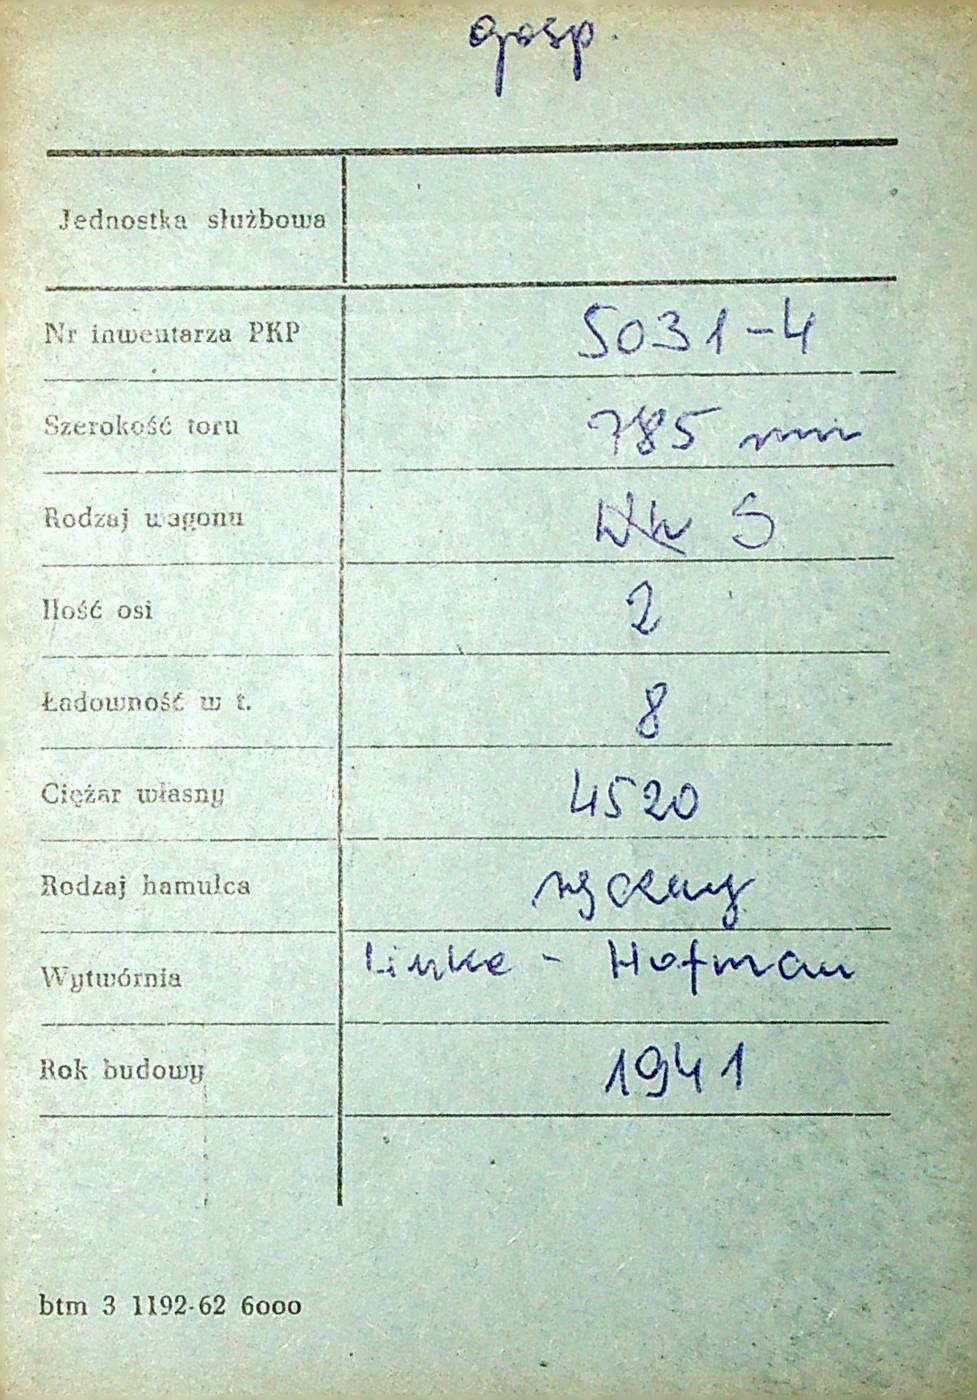 gosp.
Jednostka służbowa
Nr inwentarza PKP 5031-4
Szerokość toru 785 mm
Rodzaj wagonu S
Ilość osi 2
Ładowność w t. 8
Ciężar własny 4520
Rodzaj hamulca ręczny
Wytwórnia Linke - Hofman
Rok budowy 1941
btm 3 1192-62 6000